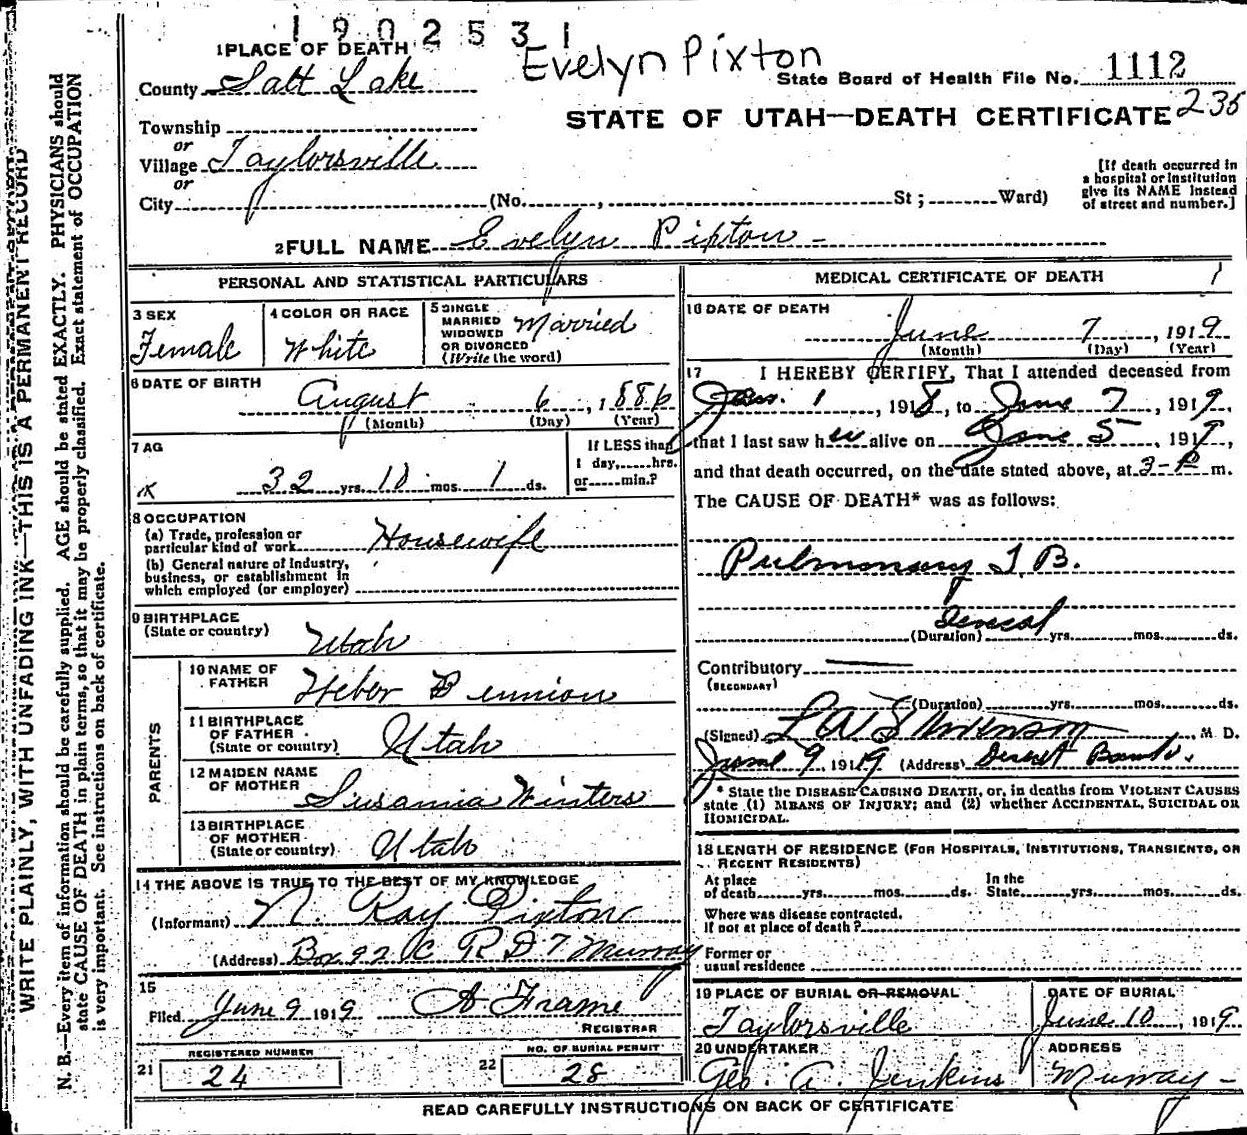 1902531
Evelyn Pixton
1 PLACE OF DEATH
County Salt Lake
State Board of Health File No. 1112
235
STATE OF UTAH—DEATH CERTIFICATE
Township
or
Village Taylorsville
or
City (No. , St ; Ward)
[If death occurred in
a hospital or institution
give its NAME instead
of street and number.]
2 FULL NAME Evelyn Pixton
PERSONAL AND STATISTICAL PARTICULARS
3 SEX
Female
4 COLOR OR RACE
White
5 SINGLE
MARRIED
WIDOWED
OR DIVORCED
(Write the word)
Married
6 DATE OF BIRTH
August 6, 1886
(Month) (Day) (Year)
7 AG
32 yrs. 10 mos. 1 ds.
If LESS than
1 day, hrs.
or min.?
8 OCCUPATION
(a) Trade, profession or
particular kind of work Housewife
(b) General nature of Industry,
business, or establishment in
which employed (or employer)
9 BIRTHPLACE
(State or country) Utah
PARENTS
10 NAME OF
FATHER Heber Bennion
11 BIRTHPLACE
OF FATHER
(State or country) Utah
12 MAIDEN NAME
OF MOTHER Susanna Winters
13 BIRTHPLACE
OF MOTHER
(State or country) Utah
14 THE ABOVE IS TRUE TO THE BEST OF MY KNOWLEDGE
(Informant) N. Ray Pixton
(Address) Box 92 C R D 7 Murray
15
Filed June 9 1919 A Frame
REGISTRAR
REGISTERED NUMBER
21 24
NO. OF BURIAL PERMIT
22 28
MEDICAL CERTIFICATE OF DEATH
1
16 DATE OF DEATH
June 7, 1919
(Month) (Day) (Year)
17 I HEREBY CERTIFY, That I attended deceased from
Jan. 1, 1918, to June 7, 1919,
that I last saw her alive on June 5, 1919,
and that death occurred, on the date stated above, at 3-P m.
The CAUSE OF DEATH* was as follows:
Pulmonary T B.
(Duration) Several yrs. mos. ds.
Contributory
(SECONDARY)
(Duration) yrs. mos. ds.
(Signed) M D.
June 9, 1919 (Address) Deseret Bank.
* State the DISEASE CAUSING DEATH, or, in deaths from VIOLENT CAUSES
state (1) MEANS OF INJURY; and (2) whether ACCIDENTAL, SUICIDAL OR
HOMICIDAL.
18 LENGTH OF RESIDENCE (FOR HOSPITALS, INSTITUTIONS, TRANSIENTS, OR
RECENT RESIDENTS)
At place
of death yrs. mos. ds.
In the
State yrs. mos. ds.
Where was disease contracted.
If not at place of death?
Former or
usual residence
19 PLACE OF BURIAL OR REMOVAL
Taylorsville
DATE OF BURIAL
June 10, 1919
20 UNDERTAKER
Geo. A. Jenkins
ADDRESS
Murray
READ CAREFULLY INSTRUCTIONS ON BACK OF CERTIFICATE
WRITE PLAINLY, WITH UNFADING INK—THIS IS A PERMANENT RECORD
N. B.—Every item of information should be carefully supplied. AGE should be stated EXACTLY. PHYSICIANS should
state CAUSE OF DEATH in plain terms, so that it may be properly classified. Exact statement of OCCUPATION
is very important. See instructions on back of certificate.